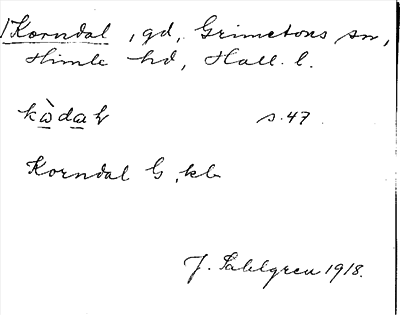 Korndal, gd, Grimetons sn,
Himle hd, Hall. l.
s. 47.
Korndal G. kb
J. Sahlgren 1918.